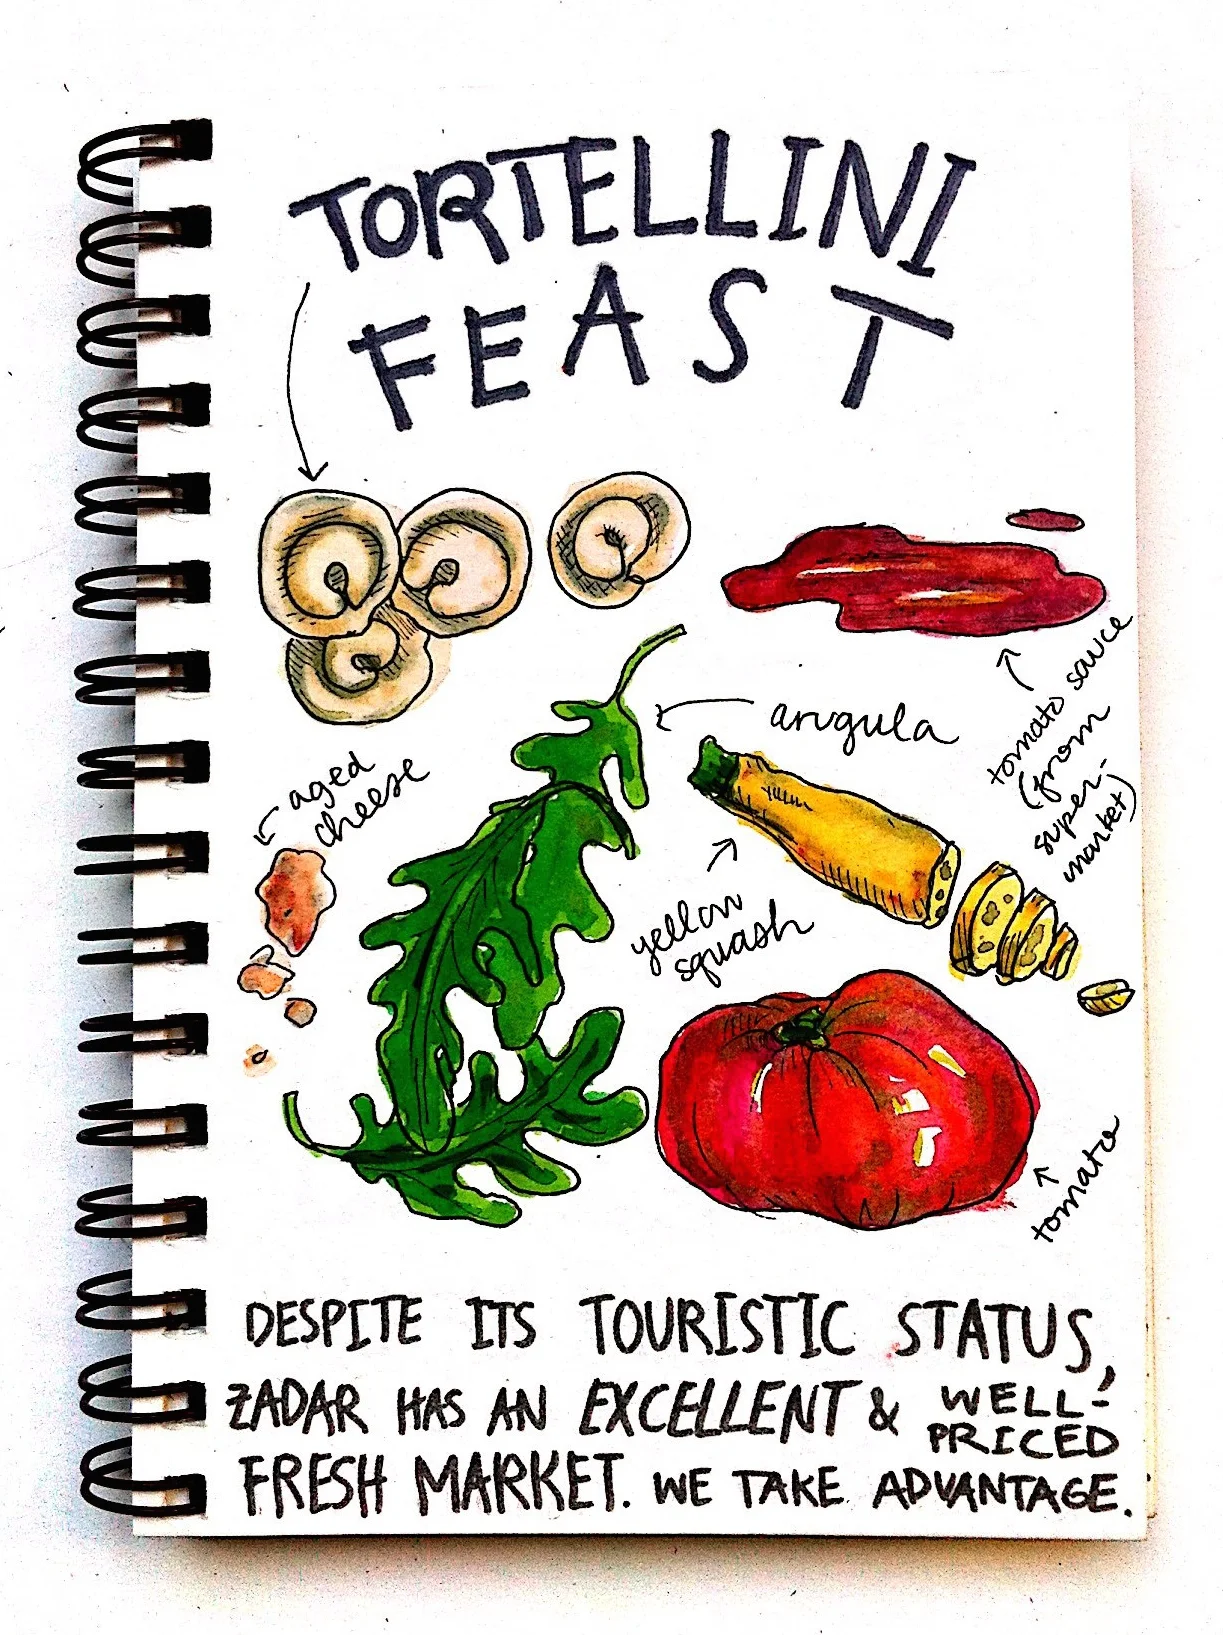 TORTELLINI
FEAST
arugula
tomato sauce
(from
super-
market)
aged
cheese
yellow
squash
tomato
DESPITE ITS TOURISTIC STATUS,
ZADAR HAS AN EXCELLENT & WELL-
PRICED
FRESH MARKET. WE TAKE ADVANTAGE.